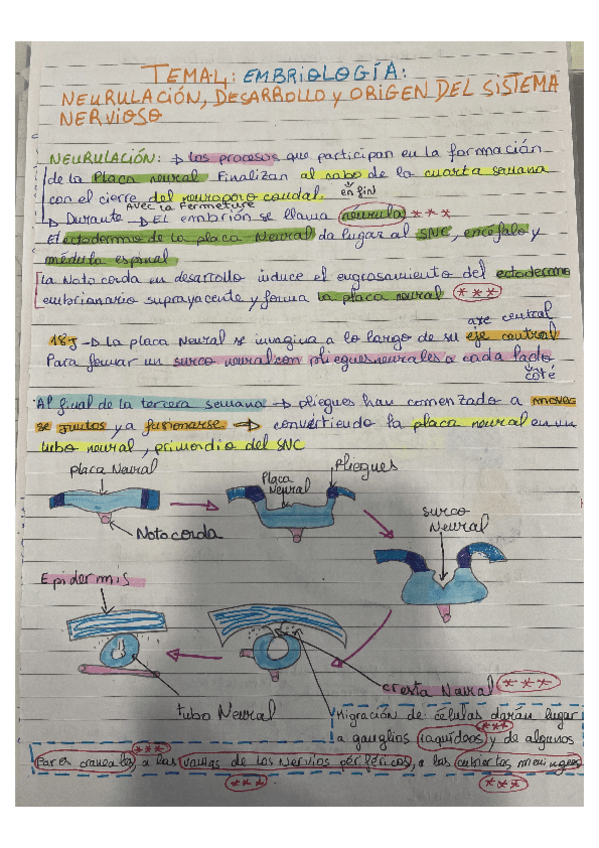 TEMA4: EMBRIOLOGÍA:
NEURULACIÓN, DESARROLLO y ORIGEN DEL SISTEMA
NERVIOSO
NEURULACIÓN: → Los procesos que participan en la formación
de la Placa neural. Finalizan al cabo de la cuarta semana
con el cierre del neuroporo caudal.
en fin
Avec la Fermeture
↳ Durante → EL embrión se llama neurula ***
El ectodermo de la placa Neural da lugar al SNC, encéfalo y
médula espinal
la Notocorda en desarrollo induce el engrosamiento del ectodermo
embrionario suprayacente y forma la placa neural ***
axe central
18J → La placa Neural se invagina a lo largo de su eje central
Para formar un surco neural con pliegues neurales a cada lado
côté
Al final de la tercera semana → pliegues han comenzado a mover
se juntos y a fusionarse → convirtiendo la placa neural en un
tubo neural, primordio del SNC
placa Neural
Placa
Neural
Pliegues
Notocorda
surco
Neural
Epidermis
cresta Neural ***
tubo Neural
Migración de células darán lugar
***
a ganglios (raquídeos) y de algunos
Pares craneales, a las vainas de los Nervios periféricos, a las cubiertas meninges
***
***
***